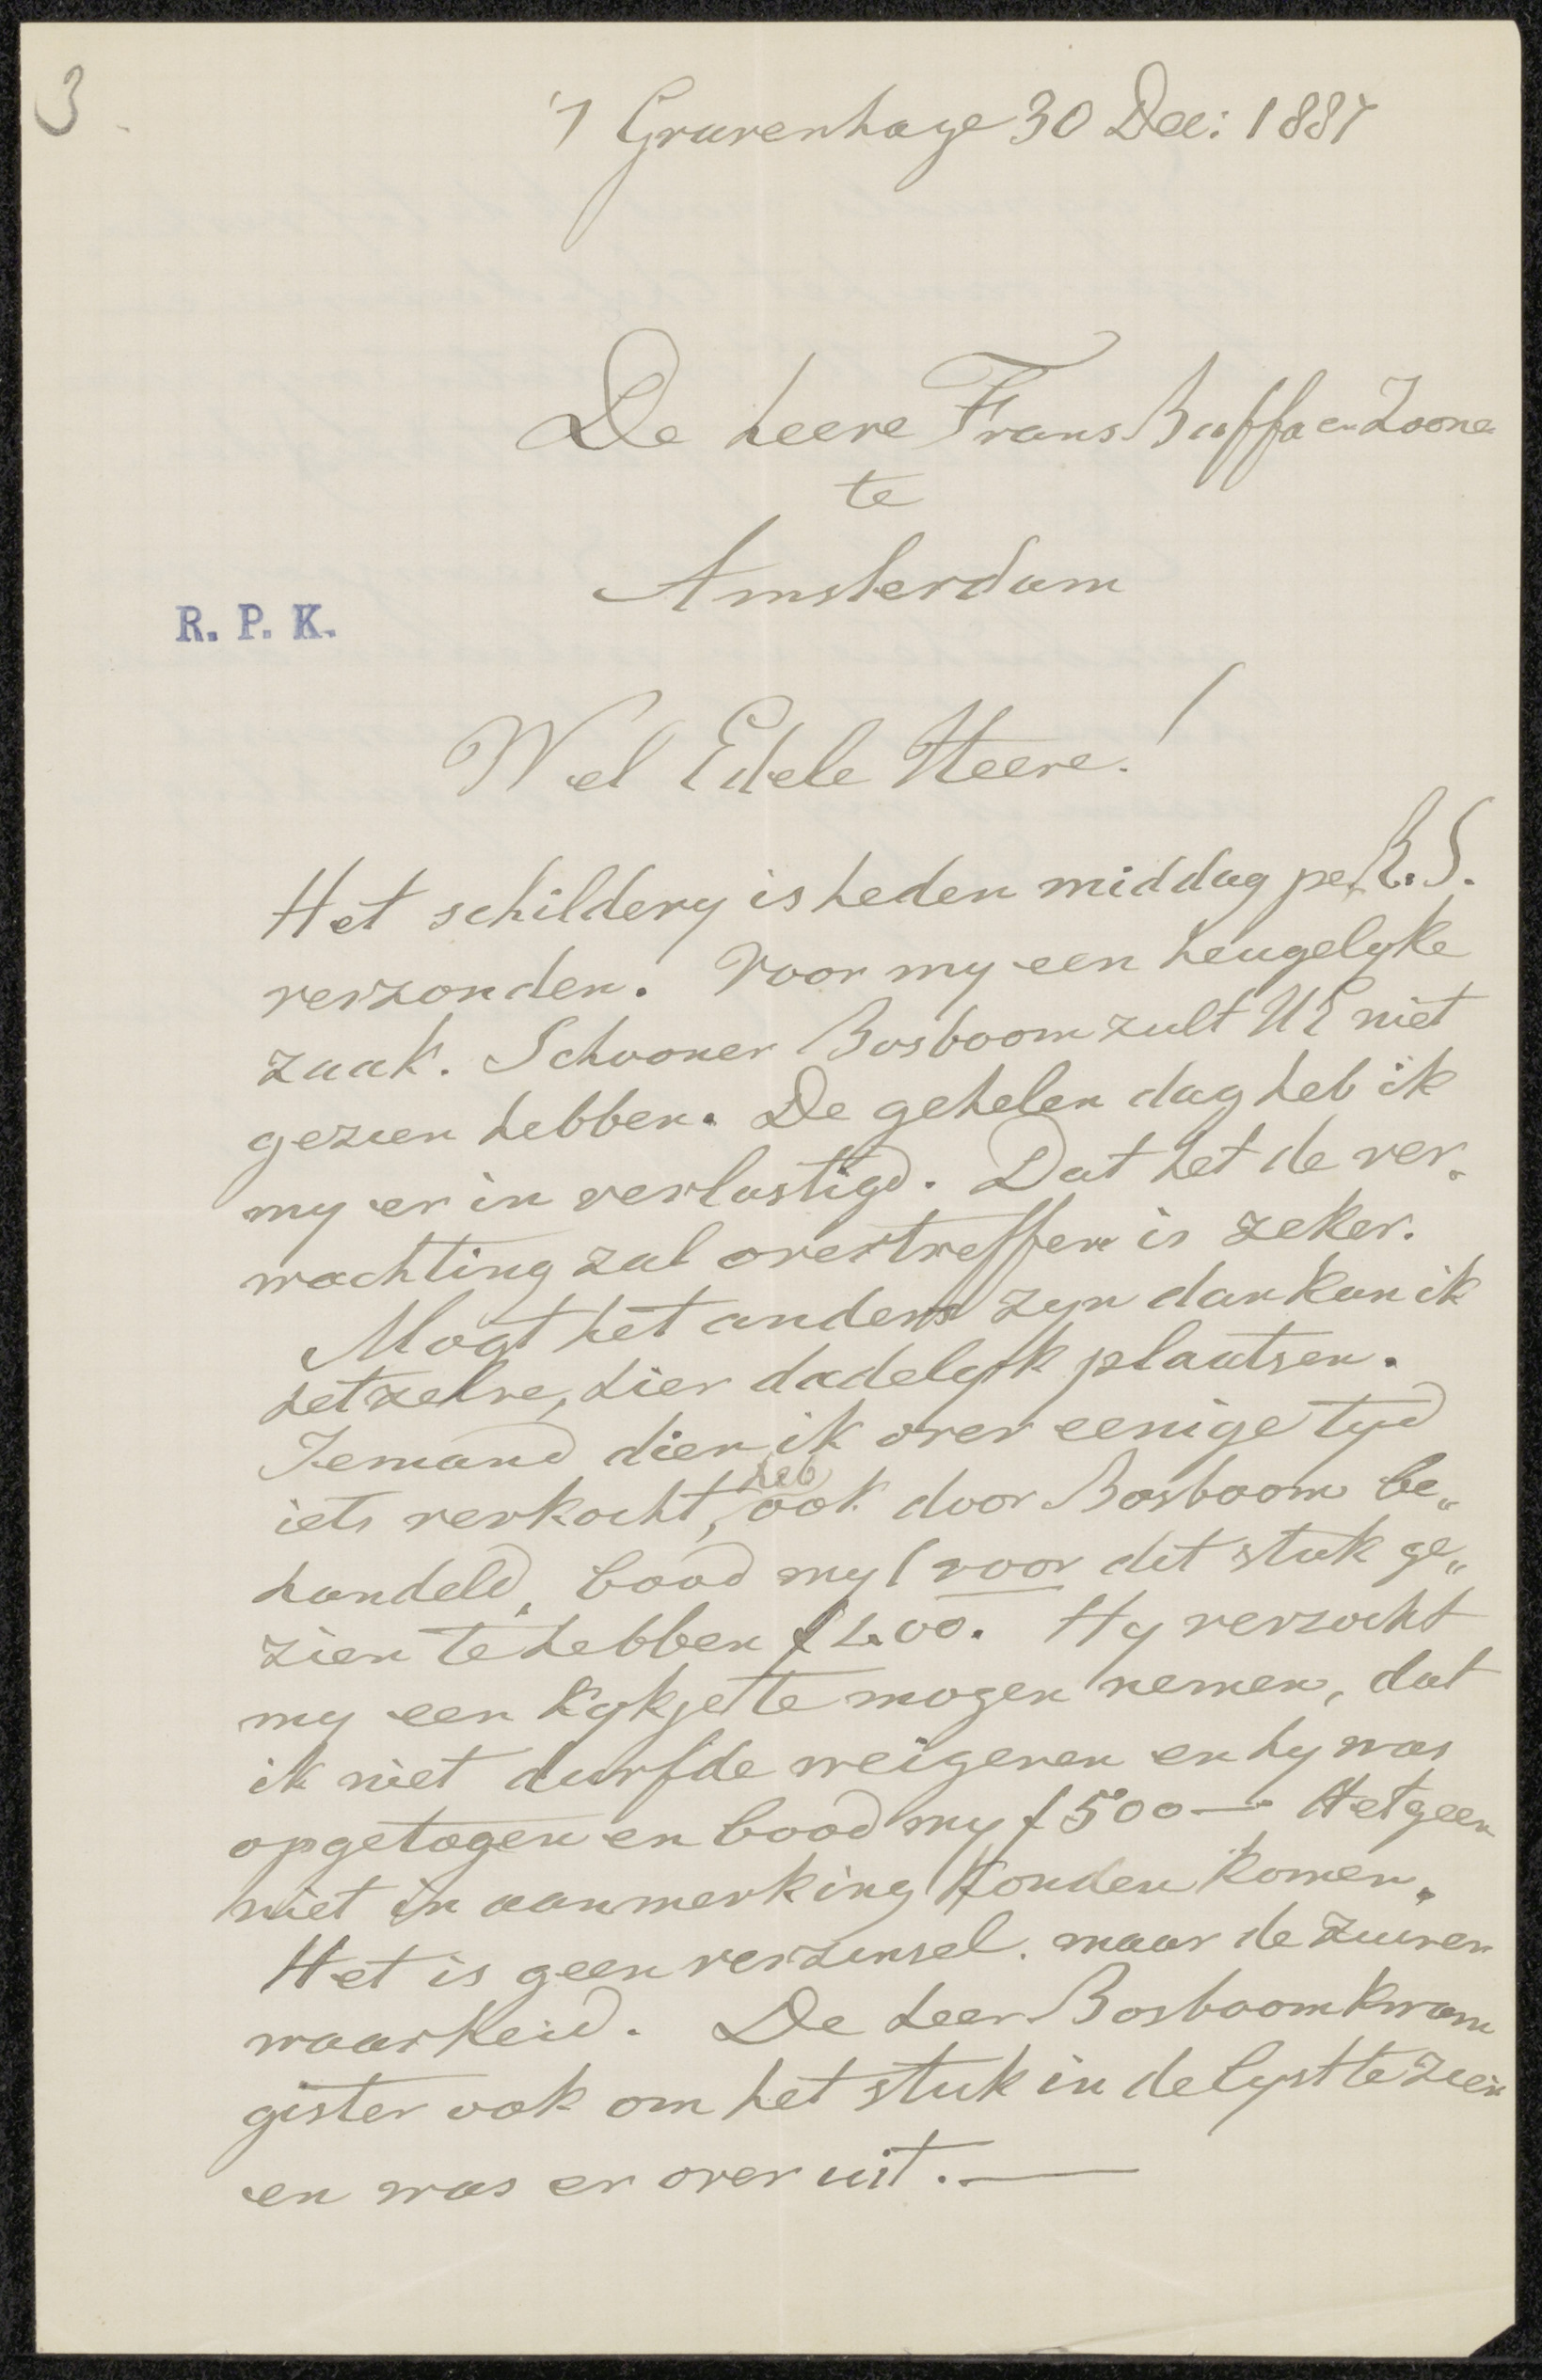 3
's Gravenhage 30 Dec: 1887
De heere Frans Buffa en Zoone
te
Amsterdam
R. P. K.
Wel Edele Heere!
Het schildery is heden middag per R. S.
verzonden. Voor my een heugelyke
zaak. Schooner Bosboom zult UE niet
gezien hebben. De gehelen dag heb ik
my er in verlustigd. Dat het de ver„
wachting zal overtreffen is zeker.
Mogt het anders zyn dan kan ik
hetzelve, hier dadelyk plaatsen.
Iemand dien ik over eenige tyd
heb
iets verkocht, ook door Bosboom be„
handeld, bood my (voor dit stuk ge„
zien te hebben f 400. Hy verzocht
my een kykje te mogen nemen, dat
ik niet durfde weigeren en hy was
opgetogen en bood my f 500— Hetgeen
niet in aanmerking konden komen.
Het is geen verzinsel. maar de zuiveren
waarheid. De heer Bosboom kwam
gister ook om het stuk in de lyst te zien
en was er over uit.—